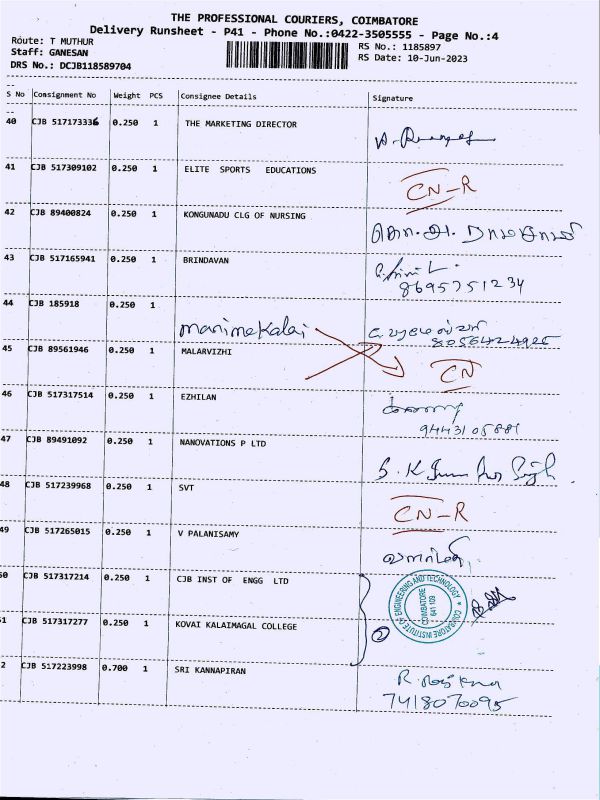 THE PROFESSIONAL COURIERS, COIMBATORE
Delivery Runsheet - P41 - Phone No.:0422-3505555 - Page No.:4
Route: T MUTHUR
Staff: GANESAN
DRS No.: DCJB118589704
RS No.: 1185897
RS Date: 10-Jun-2023
S No Consignment No Weight PCS Consignee Details Signature
40 CJB 517173336 0.250 1 THE MARKETING DIRECTOR
41 CJB 517309102 0.250 1 ELITE SPORTS EDUCATIONS CN-R
42 CJB 89400824 0.250 1 KONGUNADU CLG OF NURSING
43 CJB 517165941 0.250 1 BRINDAVAN
8695751234
44 CJB 185918 0.250 1
manimekalai
8056424925
45 CJB 89561946 0.250 1 MALARVIZHI CN
46 CJB 517317514 0.250 1 EZHILAN
47 CJB 89491092 0.250 1 NANOVATIONS P LTD
48 CJB 517239968 0.250 1 SVT CN-R
49 CJB 517265015 0.250 1 V PALANISAMY
50 CJB 517317214 0.250 1 CJB INST OF ENGG LTD
COIMBATORE INSTITUTE OF ENGINEERING AND TECHNOLOGY
COIMBATORE
641 109
51 CJB 517317277 0.250 1 KOVAI KALAIMAGAL COLLEGE 2
2 CJB 517223998 0.700 1 SRI KANNAPIRAN
7418070095